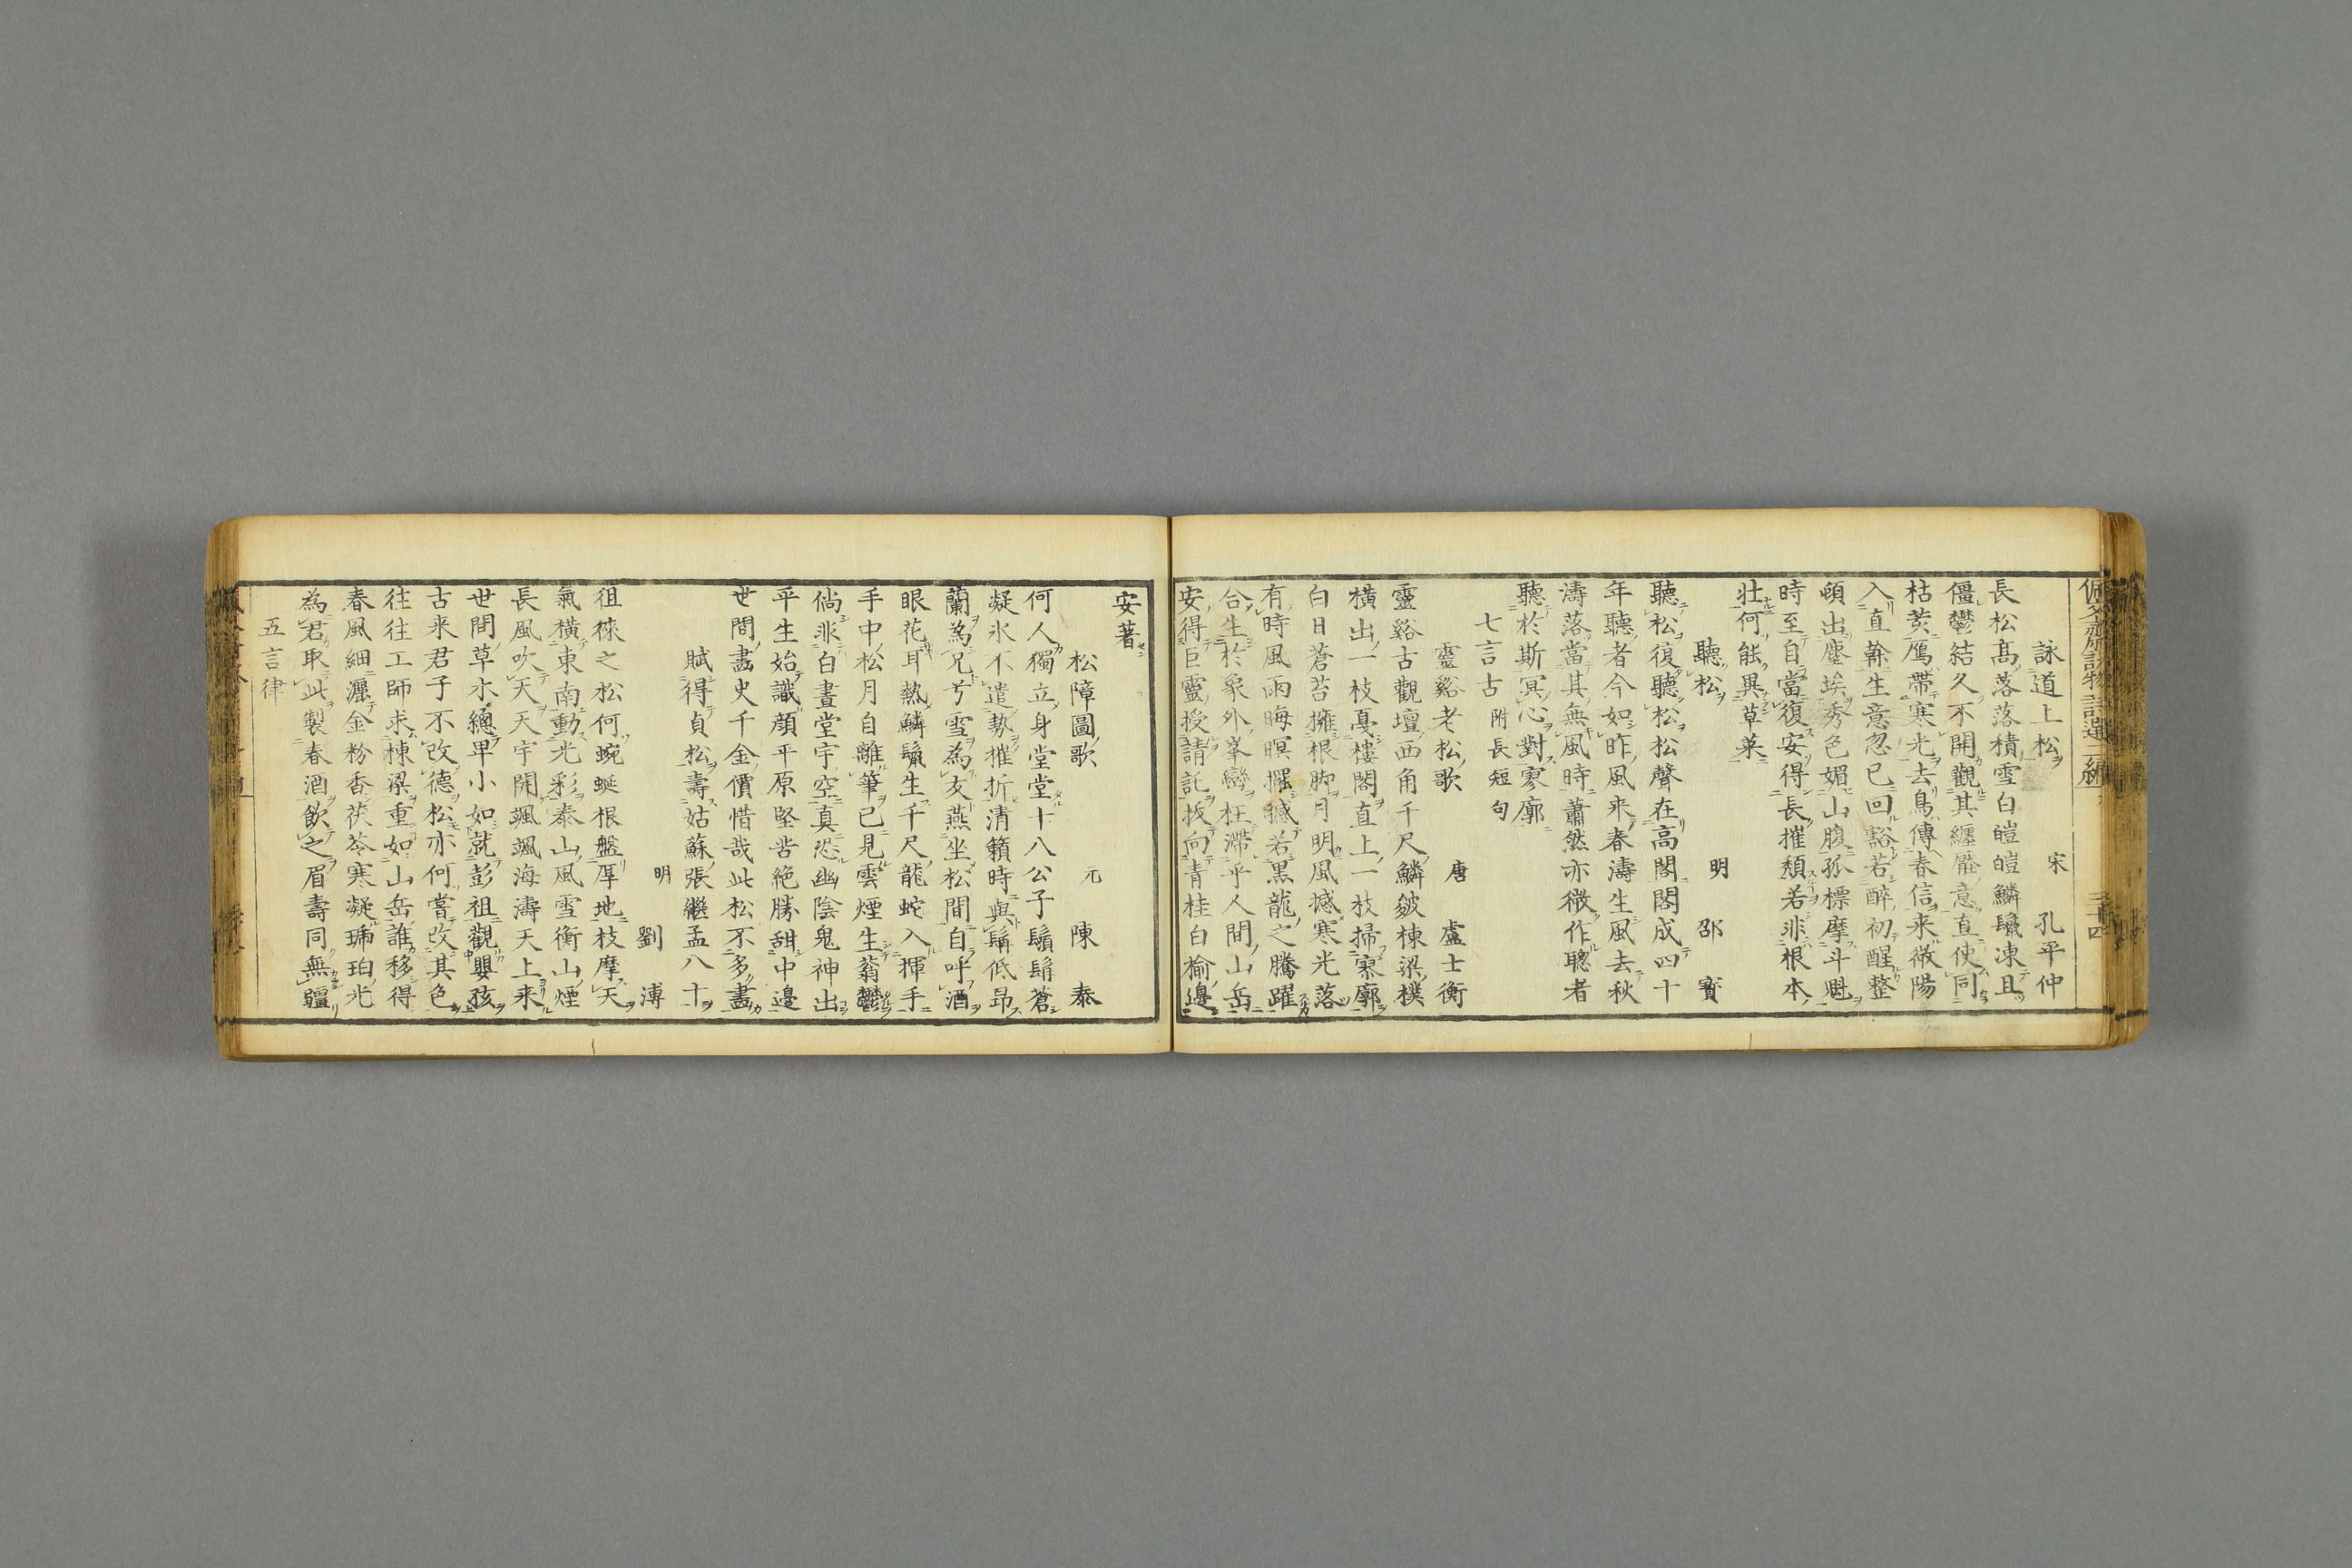 詠道上松 宋 孔平仲
長松高落落積雪白皚皚鱗鬣凍且
僵鬱結久不開觀其纏壓意直使同
枯荄鴈帶寒光去鳥傳春信来微陽
入直榦生意忽已回豁若醉初醒整
頓出塵埃秀色媚山腹孤標摩斗魁
時至自當復安得長摧頹若非根本
壮何能異草莱
聽松 明 邵寶
聽松復聽松松聲在高閣閣成四十
年聽者今如昨風来春濤生風去秋
濤落當其無風時蕭然亦微作聽者
聽於斯冥心對寥廓
七言古 附長短句
靈谿老松歌 唐 盧士衡
靈谿古觀壇西角千尺鱗皴棟梁樸
横出一枝戞樓閣直上一枝掃寥廓
白日蒼苔擁根脚月明風撼寒光落
有時風雨晦暝擺撼若黒龍之騰躍
合生於象外峯巒枉滯乎人間山岳
安得巨靈授請託拔向青桂白楡邊
安著
松障圖歌 元 陳泰
何人獨立身堂堂十八公子鬚髯蒼
凝氷不遣勢摧折清籟時與鬚低昂
蘭為兄兮雪為友燕坐松間自呼酒
眼花耳熱鱗鬛生千尺龍蛇入揮手
手中松月自離筆已見雲煙生蓊鬱
倘非白晝堂宇空真恐幽陰鬼神出
平生始識顔平原堅苦絶勝甜中邊
世間畵史千金價惜哉此松不多畫
賦得貞松壽姑蘇張繼孟八十
明 劉溥
徂徠之松何蜿蜒根盤厚地枝摩天
氣横東南動光彩泰山風雪衡山煙
長風吹天天宇開颯颯海濤天上来
世間草木總卑小如就彭祖觀嬰孩
古来君子不改德松亦何嘗改其色
往往工師求棟梁重如山岳誰移得
春風細灑金粉香茯苓寒凝琥珀光
為君取此製春酒飲之眉壽同無疆
五言律